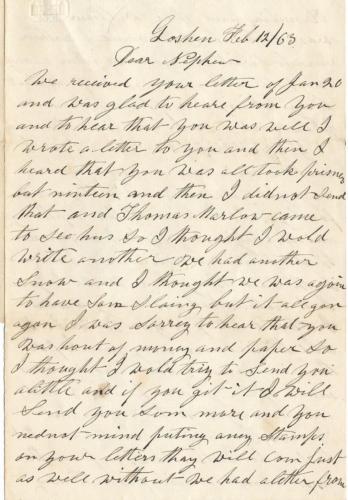 Goshen Feb 12/63
Dear Nephew
We receved your letter of Jan 20
and was glad to heare from you
and to hear that you was well I
wrote a letter to you and then I
heard that you was all took prisners
but ninteen and then I did not send
that and Thomas Marlow came
to see hus so I thought I wold
write another we had another
snow and I thought we was again
to have som Slaing but it all gon
agan I was sorrey to hear that you
was hout of money and paper so
I thought I wold triy to send you
alittle and if you git it I will
send you som more and you
nednot mind puting aney stamps
on your letters thay will com just
as well without we had aletter from